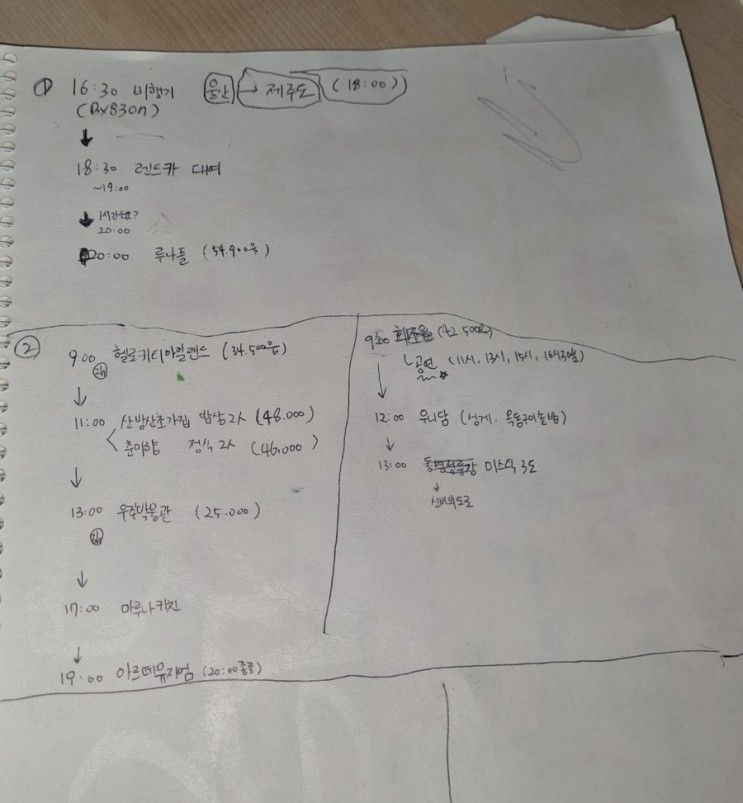 ① 16:30 비행기 울산 → 제주도 (18:00)
(BX8307)
18:30 렌트카 대여
~19:00
1시간소요?
20:00
20:00 루나폴 (54.900원)
② 9:00 헬로키티아일랜드 (34.500원)
11:00 산방산초가집 밥상 2人 (48.000)
춘미향 정식 2人 (46.000)
13:00 우주박물관 (25.000)
17:00 마루나키친
19:00 아르떼뮤지엄 (20:00종료)
9:00 (42.500원)
공연 (11시, 13시, 15시, 16시30분)
12:00 우니담 (성게, 옥돔구이솥밥)
13:00 미스틱 3도
신비의도로